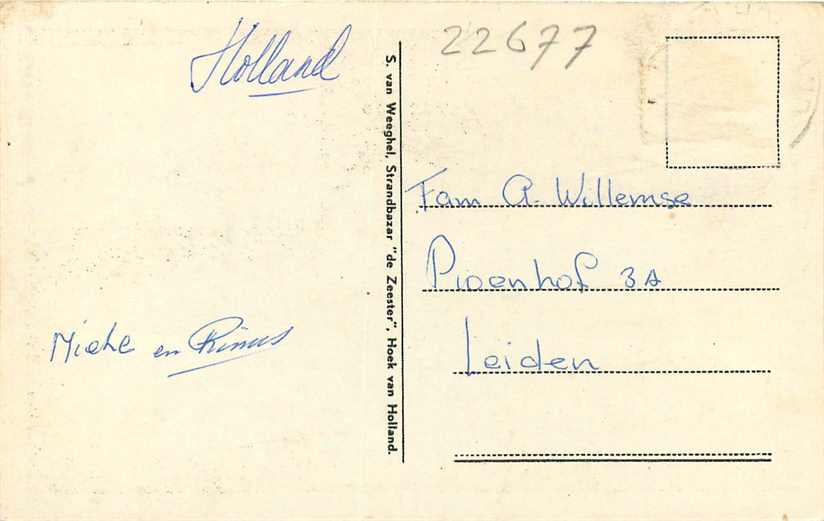 Holland
22677
S. van Weeghel, Strandbazar "de Zeester", Hoek van Holland.
Fam A. Willemse
3A
Leiden
en Rinus